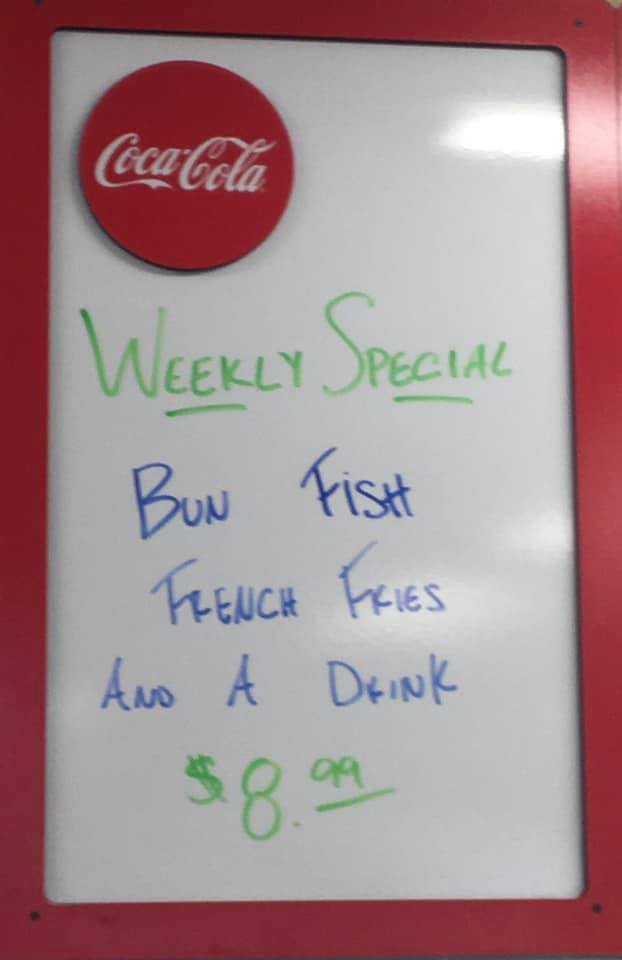 Coca-Cola
WEEKLY SPECIAL
BUN FISH
FRENCH FRIES
AND A DRINK
$8.99